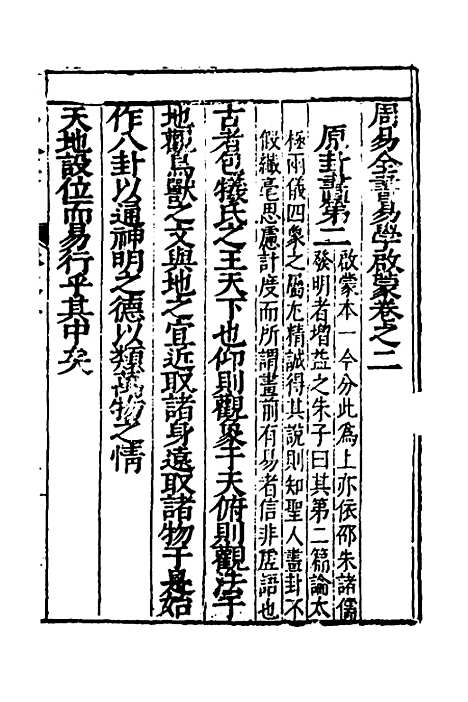 周易全書易學啟蒙卷之二
原卦畫第二 啟蒙本一今分此爲上亦依邵朱諸儒
發明者增益之朱子曰其第二篇論太
極兩儀四象之屬尤精誠得其說則知聖人畫卦不
假纖毫思慮計度而所謂畫前有易者信非虛語也
古者包犧氏之王天下也仰則觀象于天俯則觀法于
地觀鳥獸之文與地之宜近取諸身遠取諸物于是始
作八卦以通神明之德以類萬物之情
天地設位而易行乎其中矣